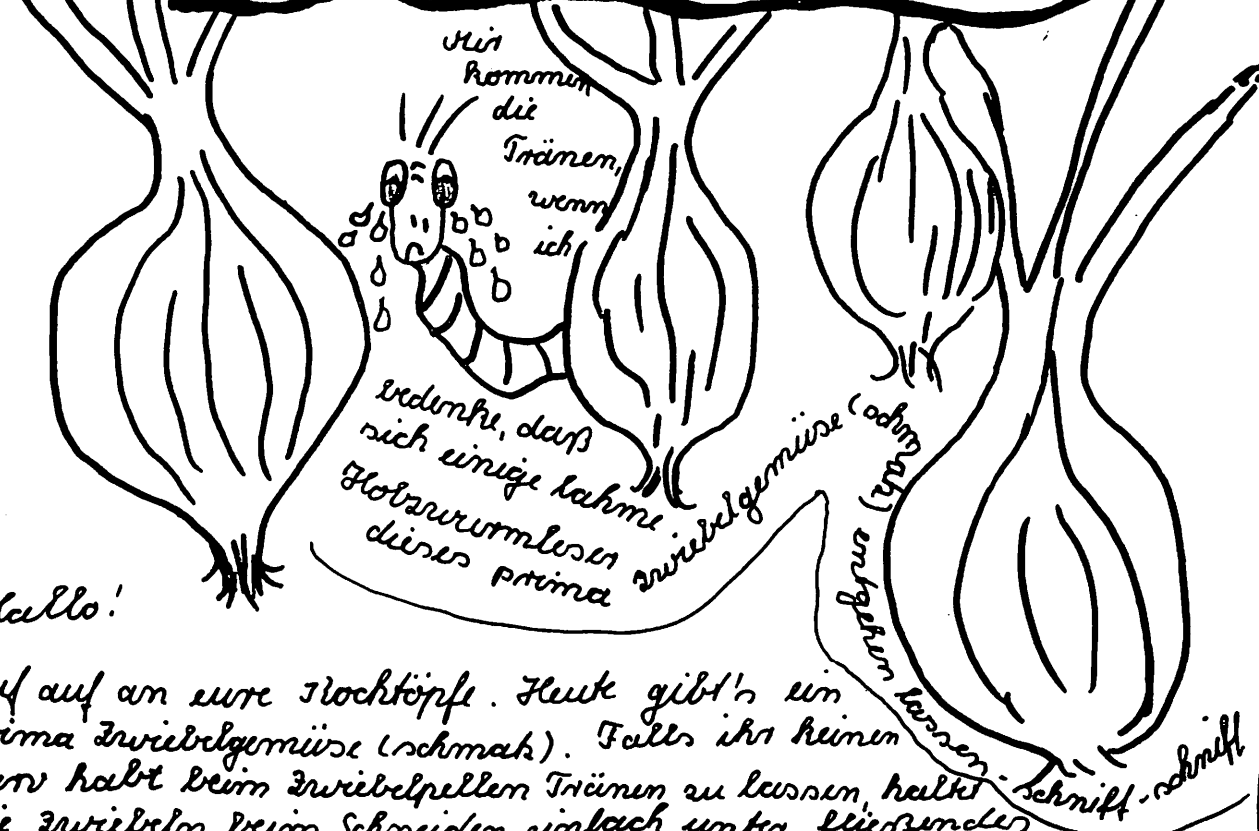 Mir
kommen
die
Tränen,
wenn
ich
bedenke, daß
sich einige lahme
Holzwurmleser
dieses prima zwiebelgemüse (schmatz) entgehen lassen. schniff-schniff
Hallo!
auf an eure Kochtöpfe. Heute gibt's ein
prima Zwiebelgemüse (schmatz). Falls ihr keinen
habt beim Zwiebelpellen Tränen zu lassen, haltet
Zwiebeln beim Schneiden einfach unter fließendes